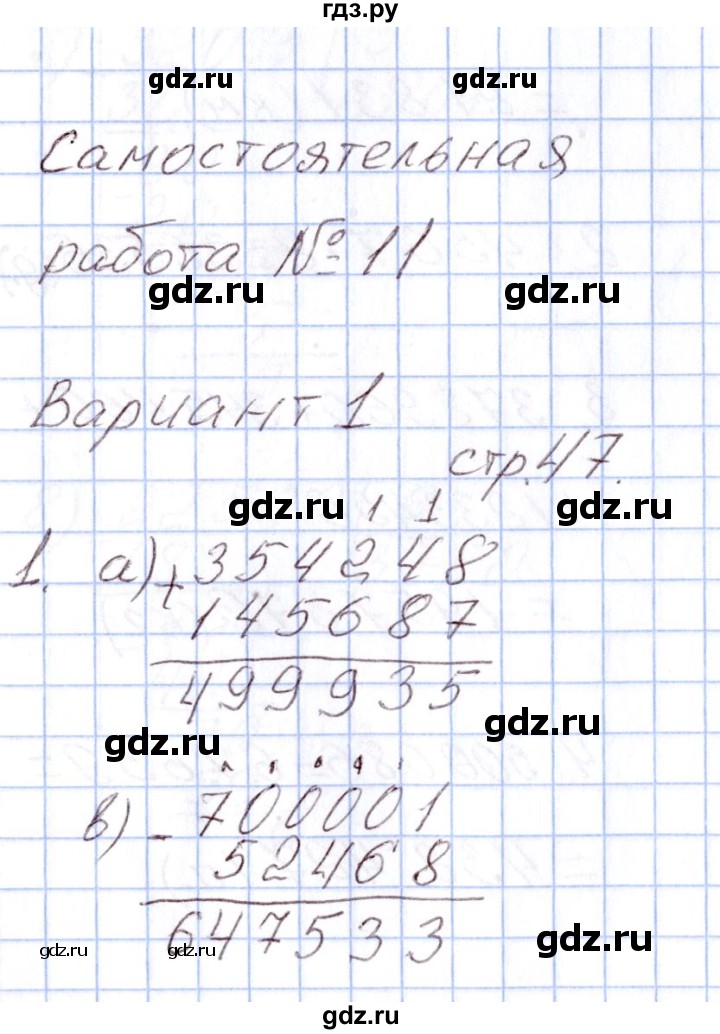 гдз.ру
gdz.ru gdz.ru
Самостоятельная
работа № 11
gdz.ru gdz.ru
Вариант 1
стр.47.
gdz.ru gdz.ru
1 1
1. а) + 354248
145687
499935
gdz.ru gdz.ru
в) - 700001
52468
647533
gdz.ru gdz.ru gdz.ru
gdz.ru